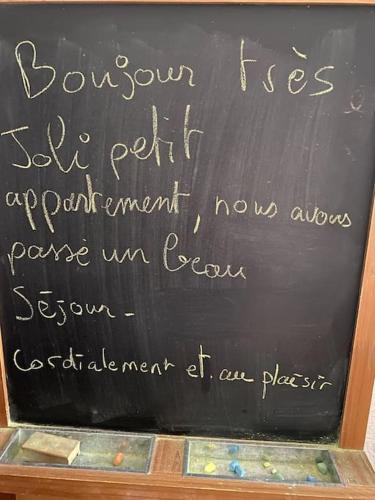 Bonjour très
Joli petit
appartement, nous avons
passé un beau
Séjour -
Cordialement et. au plaisir